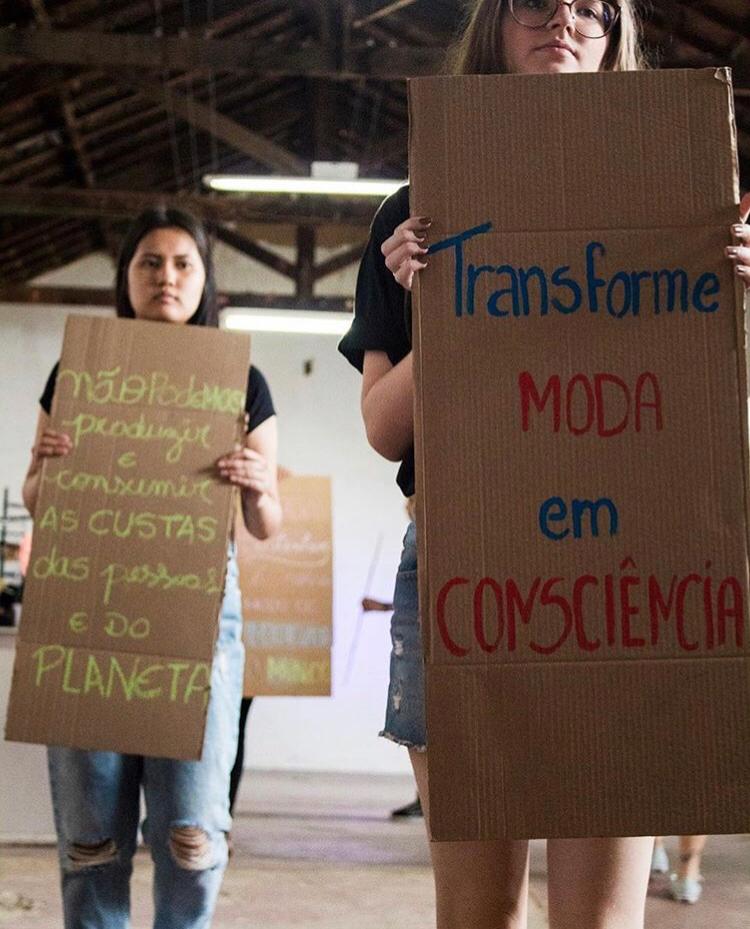 não Podemos
produzir
e
consumir
AS CUSTAS
das pessoas
E DO
PLANETA
Transforme
MODA
em
CONSCIÊNCIA